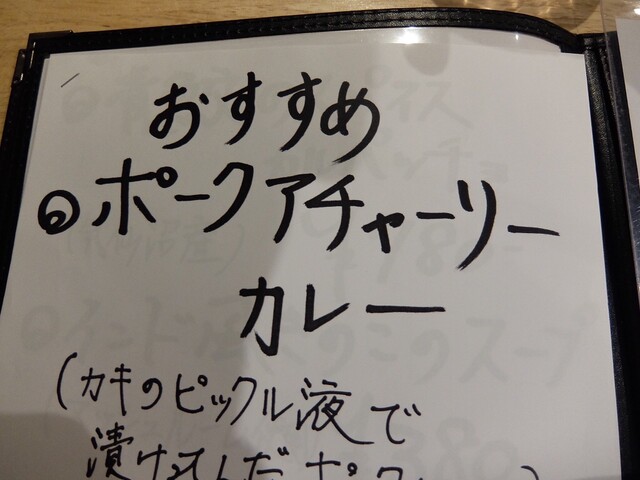 おすすめ
◎ポークアチャーリー
カレー
(カキのピックル液で
漬け込んだポーク